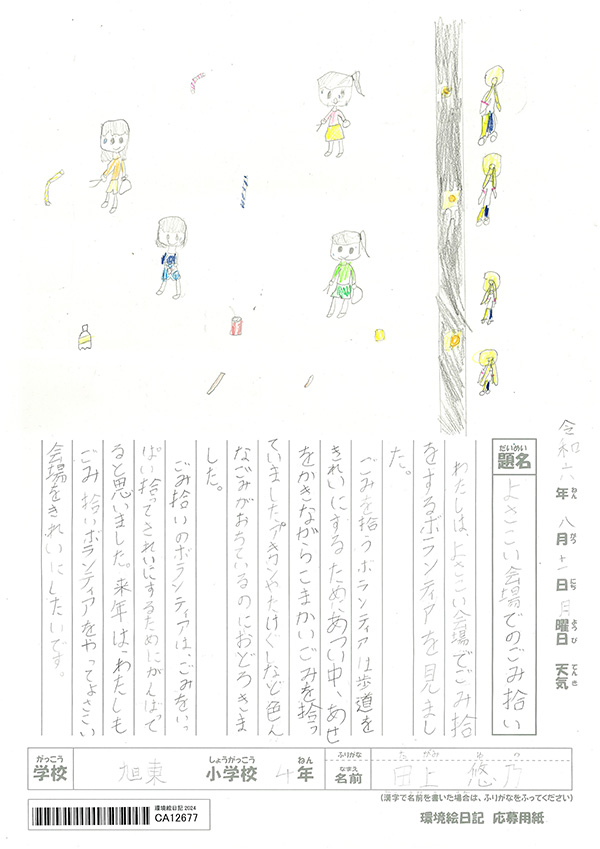 令和六年八月十一日月曜日天気
ねん
がつ
にち
ようび
てんき
だいめい
題名
よさこい会場でのごみ拾い
わたしは、よさこい会場でごみ拾い
をするボランティアを見まし
た。
ごみを拾うボランティアは歩道を
きれいにするためにあつい中、あせ
をかきながらこまかいごみを拾っ
ていました。アキカンやたけぐしなど色ん
なごみがおちているのにおどろきま
した。
ごみ拾いのボランティアは、ごみをいっ
ぱい拾ってきれいにするためにがんばって
ると思いました。来年は、わたしも
ごみ拾いボランティアをやってよさこい
会場をきれいにしたいです。
がっこう
学校
旭東
しょうがっこう
小学校
4
ねん
年
ふりがな
たがみ
なまえ
名前
田上 悠乃
(漢字で名前を書いた場合は、ふりがなをふってください)
環境絵日記2024
CA12677
環境絵日記 応募用紙